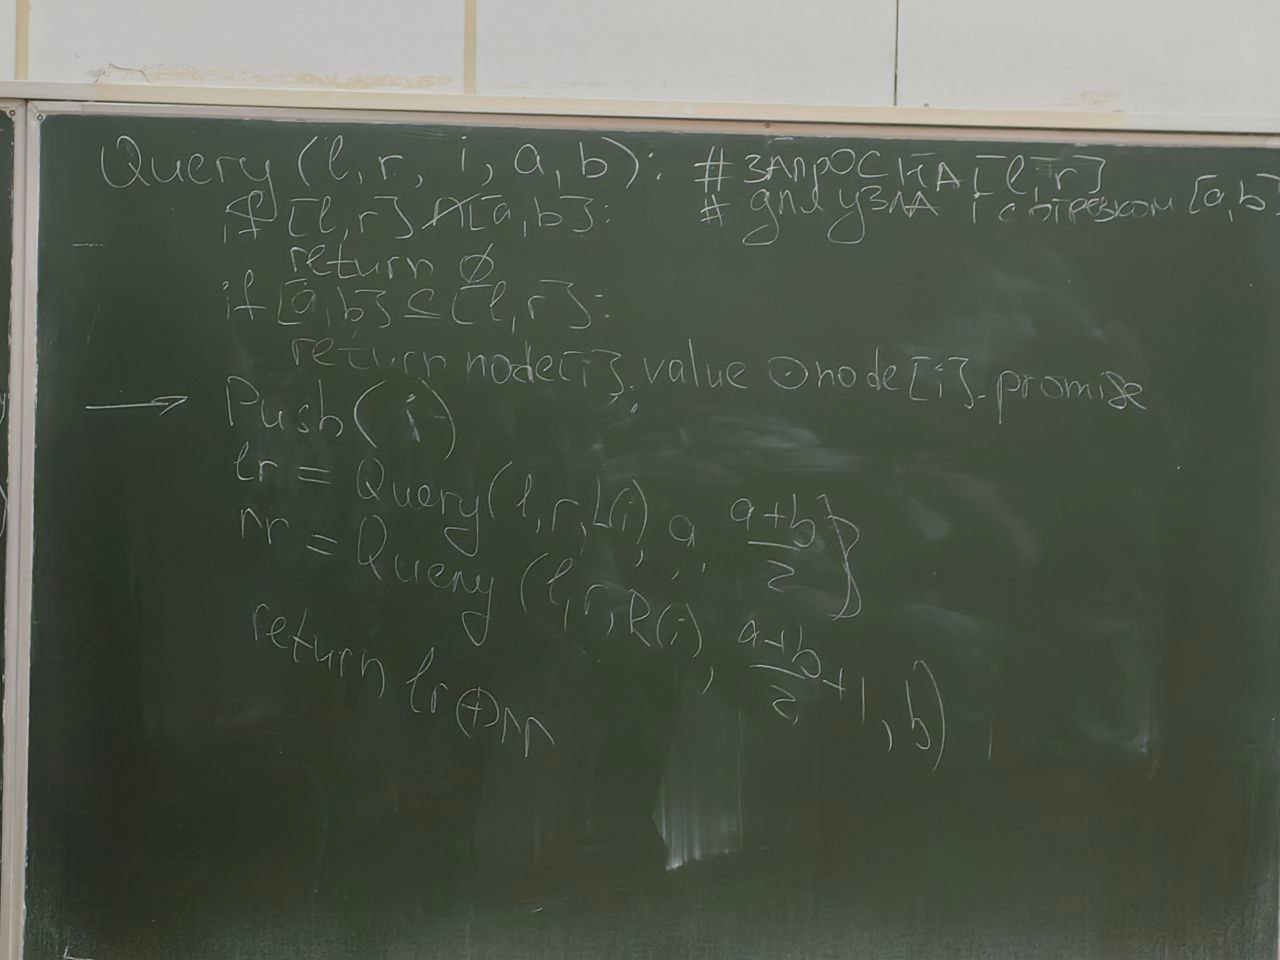 Query (l, r, i, a, b): # запрос на [l, r]
if [l, r] ∩̸ [a, b]: # для узла i с отрезком [a, b]
return ∅
if [a, b] ⊆ [l, r]:
return node[i].value ⊙ node[i].promise
→ Push(i)
lr = Query(l, r, L(i), a, a+b/2)
rr = Query(l, r, R(i), a+b/2 + 1, b)
return lr ⊕ rr